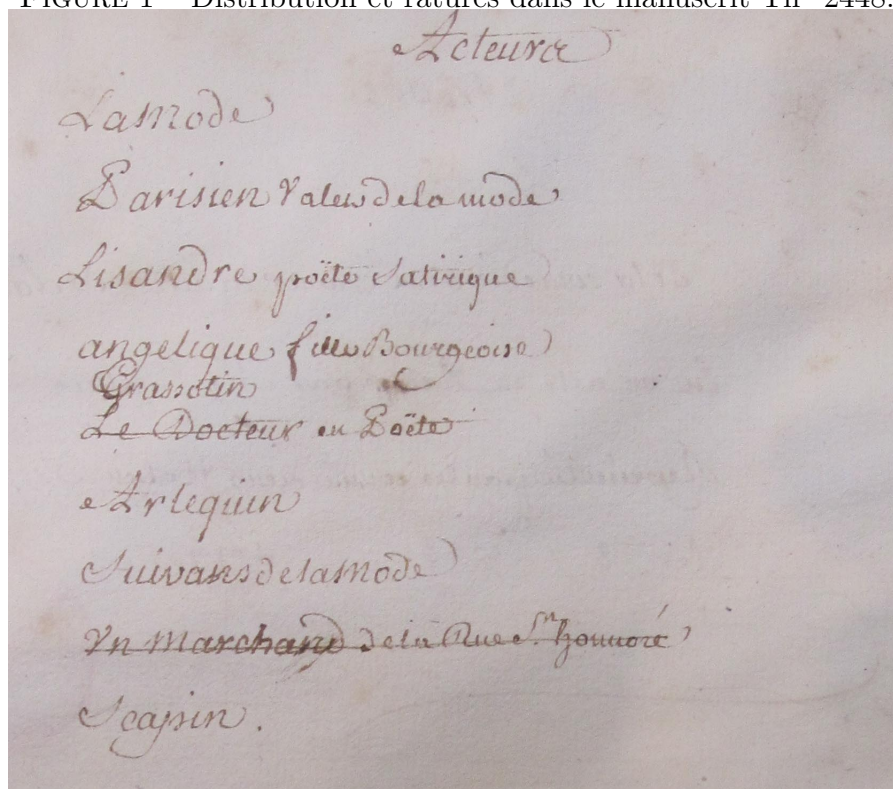 FIGURE 1 – Distribution et ratures dans le manuscrit Th° 2448.
Acteurs
La mode
Parisien Valet de la mode
Lisandre poëte Satirique
angelique fille Bourgeoise
Grassotin
Le Docteur en Poëte
Arlequin
Suivans de la mode
Un Marchand de la Rue St. honnoré
Scapin.